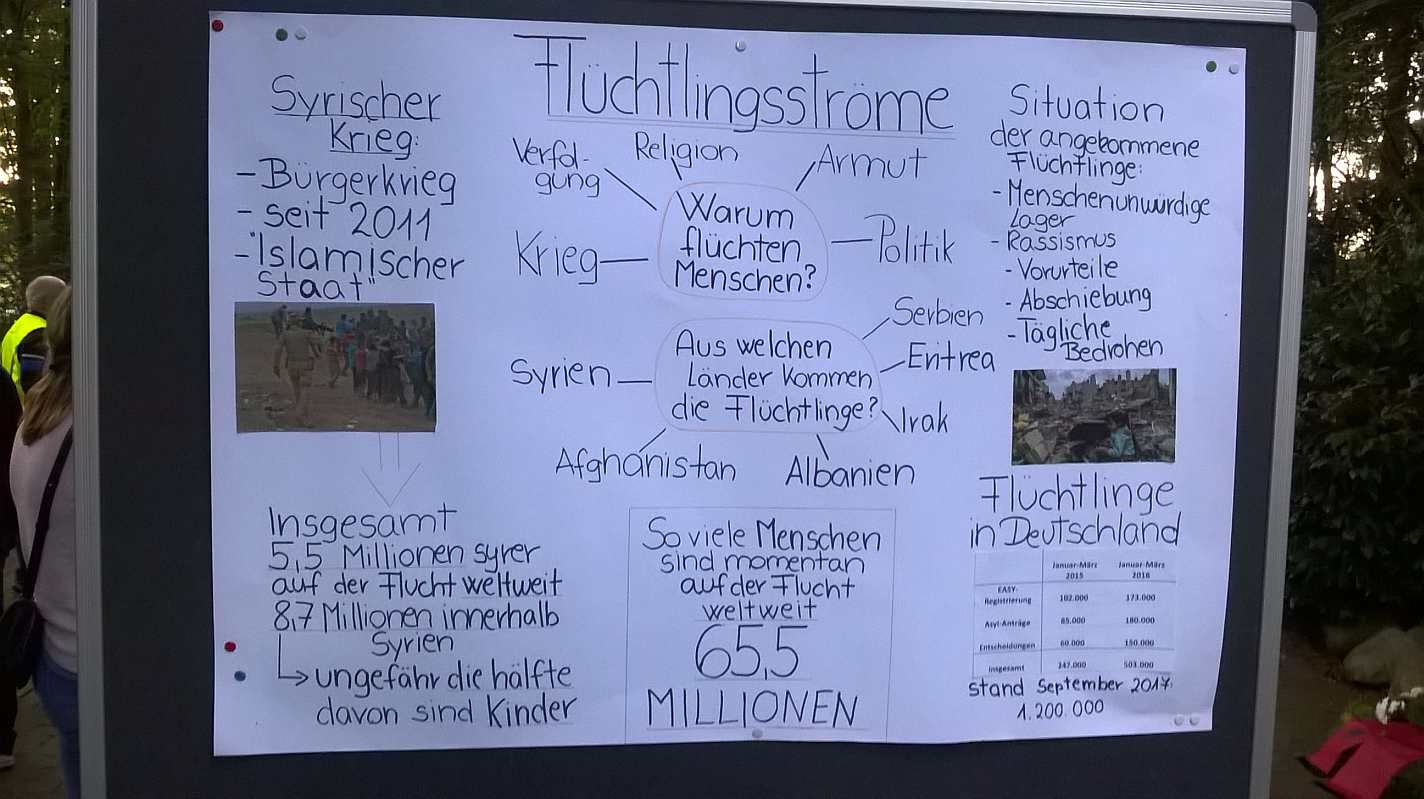 Flüchtlingsströme
Syrischer
Krieg:
- Bürgerkrieg
- seit 2011
- "Islamischer
Staat"
Insgesamt
5,5 Millionen syrer
auf der Flucht weltweit
8,7 Millionen innerhalb
Syrien
ungefähr die hälfte
davon sind Kinder
Warum
flüchten
Menschen?
Verfol-
gung
Religion
Armut
Krieg
Politik
Aus welchen
Länder kommen
die Flüchtlinge?
Serbien
Eritrea
Syrien
Irak
Afghanistan
Albanien
So viele Menschen
sind momentan
auf der Flucht
weltweit
65,5
MILLIONEN
Situation
der angekommene
Flüchtlinge:
- Menschenunwürdige
Lager
- Rassismus
- Vorurteile
- Abschiebung
- Tägliche
Bedrohen
Flüchtlinge
in Deutschland
Januar-März Januar-März
2015 2016
EASY-
Registrierung 102.000 173.000
Asyl-Anträge 85.000 180.000
Entscheidungen 60.000 150.000
Insgesamt 247.000 503.000
stand September 2017:
1.200.000